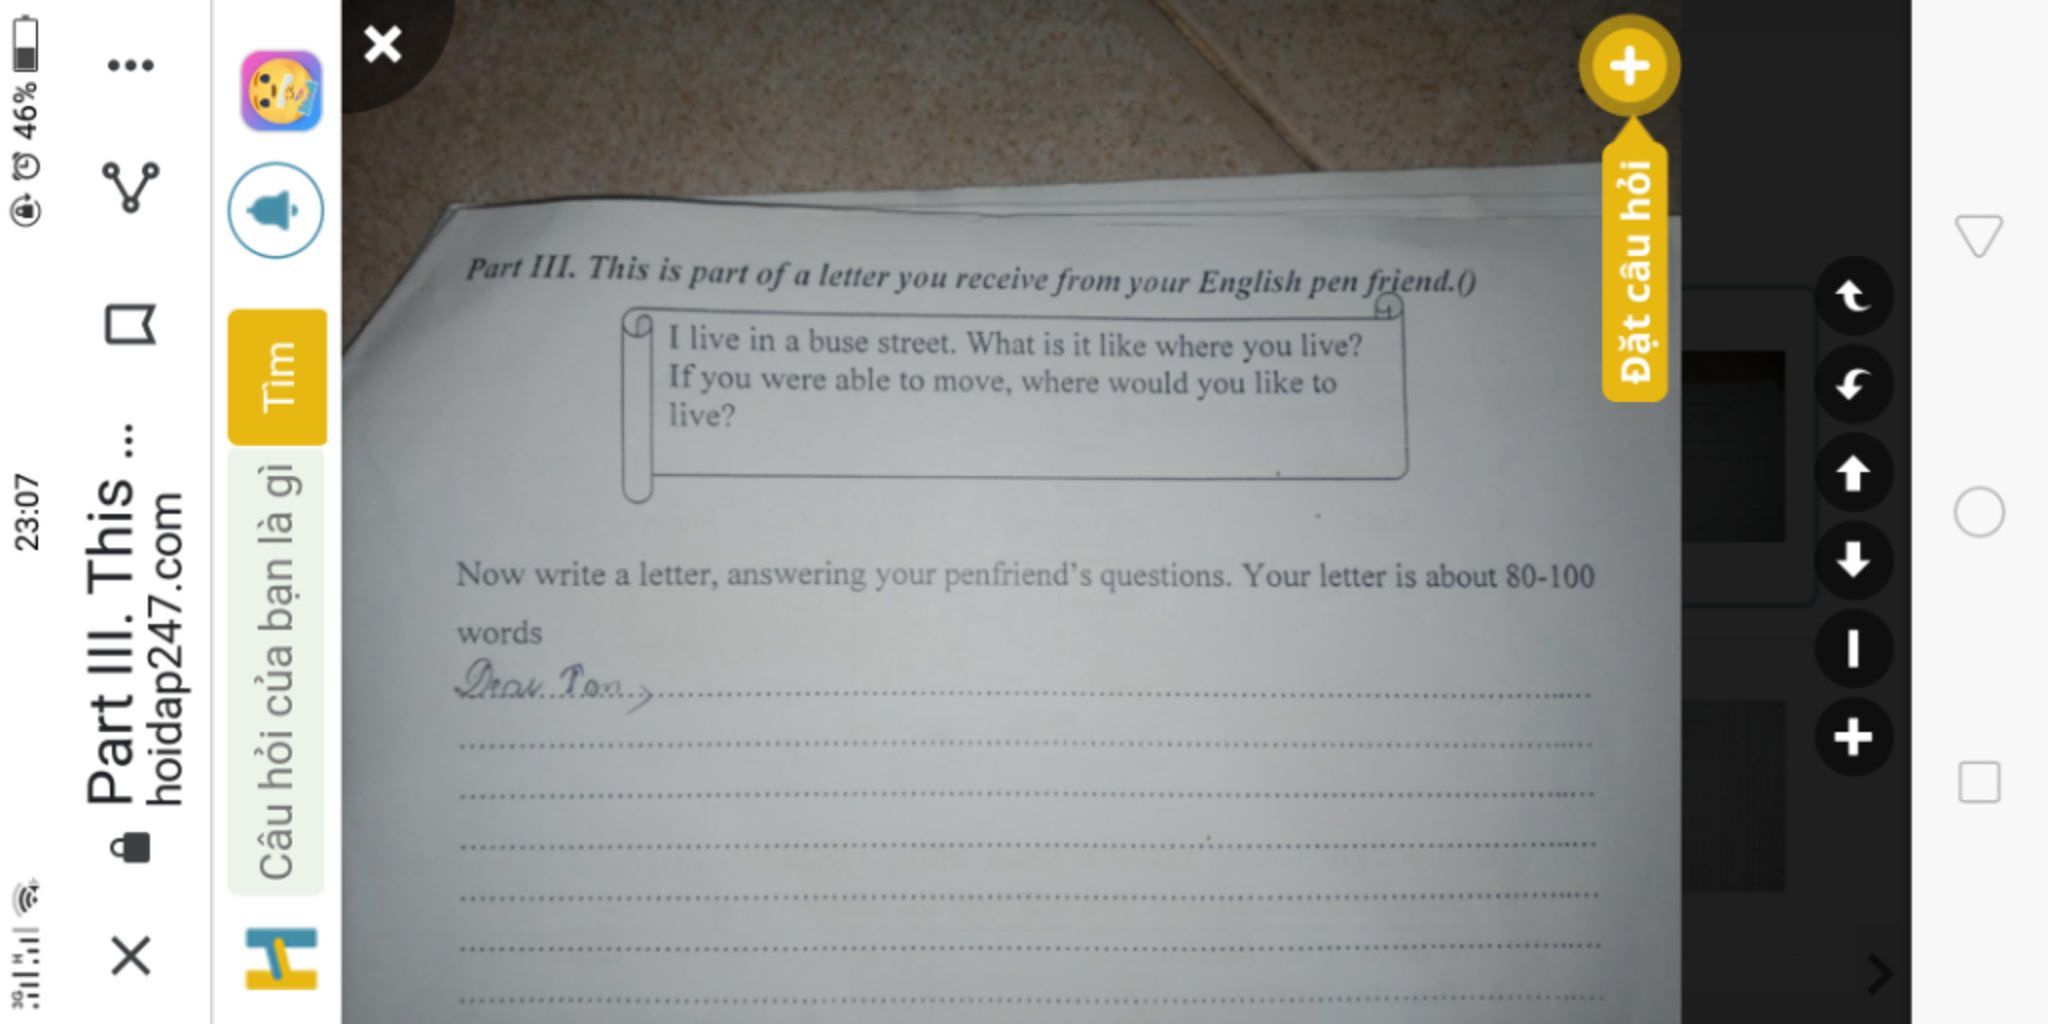 23:07
46%
3G
H
Part III. This ...
hoidap247.com
Câu hỏi của bạn là gì
Tìm
Đặt câu hỏi
Part III. This is part of a letter you receive from your English pen friend.()
I live in a buse street. What is it like where you live?
If you were able to move, where would you like to
live?
Now write a letter, answering your penfriend's questions. Your letter is about 80-100
words
Dear Tom,